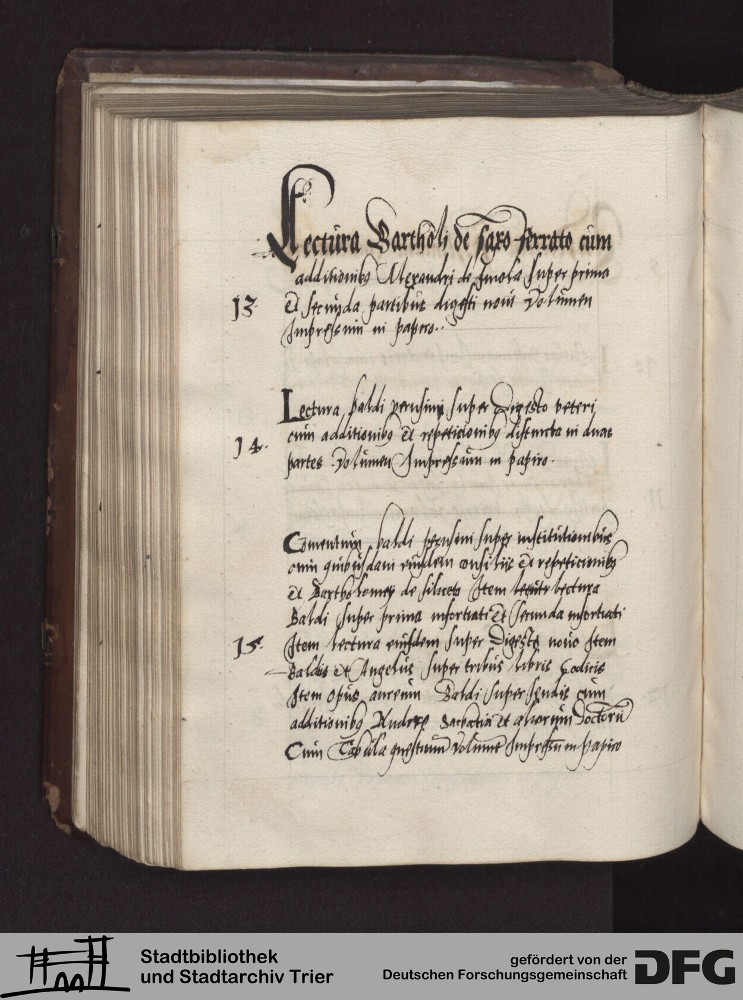 Lectura Bartholi de saxo ferrato cum
additionibꝰ Alexandri de Imola super prima
13. Et secunda partibus digesti noui Volumen
Impressum in papiro.
Lectura baldi perusini super Digesto veteri
14. cum additionibꝰ Et repeticionibꝰ distincta in duas
partes Volumen Impressum in papiro.
Comentum baldi perusini super institutionibus
cum quibusdam eiusdem consiliis Et repeticionibꝰ
Et Bartholomey de saliceto Item lectura
Baldi super prima infortiati Et secunda infortiati
15. Item lectura eiusdem super Digesto nouo Item
Baldus Et Angelus super tribus libris Codicis
Item opus aureum Baldi super feudis cum
additionibꝰ Andree Barbatia Et aliorum Doctorum
Cum Tabula Volumen Impressum in papiro
Stadtbibliothek
und Stadtarchiv Trier
gefördert von der
Deutschen Forschungsgemeinschaft
DFG